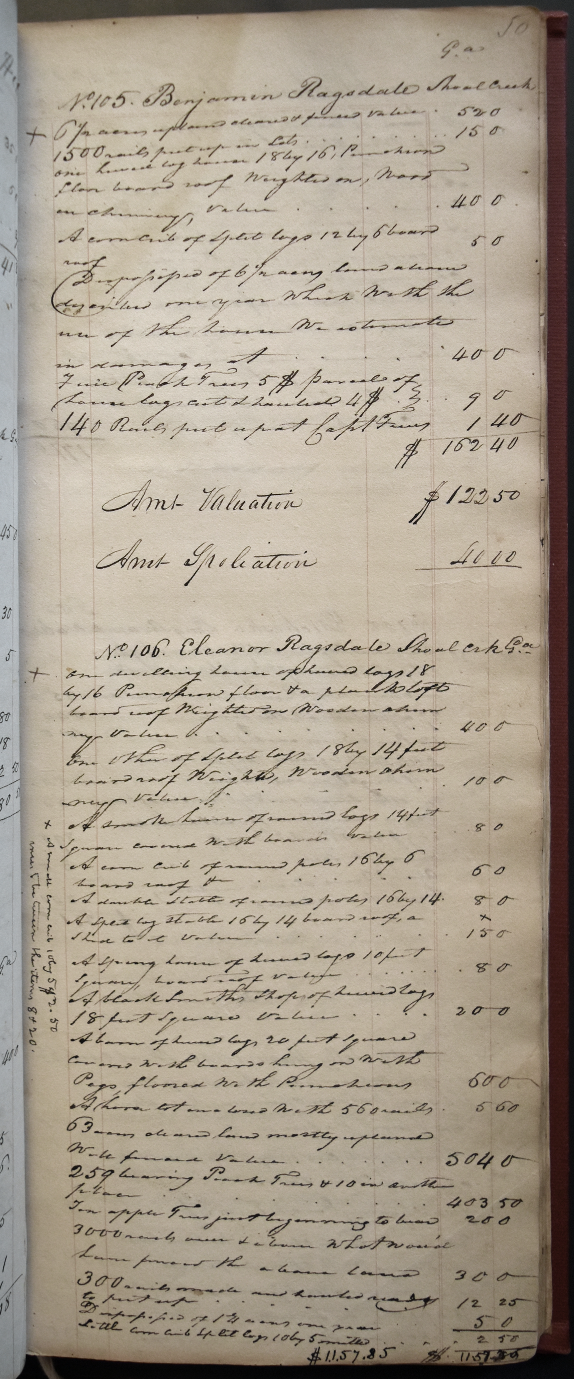 50
Ga
No. 105. Benjamin Ragsdale Shoal Creek
+ 6½ acres upland cleared & fenced value . 520
1500 rails put up in Lots . . . . . 150
one hewed log house 18 by 16, Puncheon
floor board roof Weighted on, Wood
en chimney, Value . . . . 400
A corn Crib of Split logs 12 by 6 board
roof 50
(Dispossessed of 6½ acres land above
described one year Which With the
use of the house We estimate
in damages at . . . . 400
Five Peach Trees 5$ parcel of
house logs cut & hauled 4$ . } 90
140 Rails put up at Capt 1 40
$ 162 40
Amt Valuation $ 122 50
Amt Spoliation 40 00
No. 106. Eleanor Ragsdale Shoal Crk Ga
+ one dwelling house of hewed logs 18
by 16 Puncheon floor & a plank loft
board roof Weighted on Wooden chim
ney Value . . . . . 400
one other of Split logs 18 by 14 feet
board roof Weights, Wooden chim
ney Value . . . . . 100
A smoke house of round logs 14 feet
Square covered With boards Value 80
A corn Crib of round poles 16 by 6
board roof & . . . . 60
A double Stable of round poles 16 by 14 80
A Split log Stable 16 by 14 board roof, a x
Shed to it Value . . . . 150
A Spring house of hewed logs 10 feet
Square, board roof Value . . . 80
A black Smiths Shop of hewed logs
18 feet Square Value . . . 200
A barn of hewed logs 20 feet Square
covered With boards hung on With
Pegs, floored With Puncheons 600
A horse lot enclosed With 560 rails . 560
63 acres cleared land mostly upland
Well fenced Value . . . . 5040
259 bearing Peach Trees & 10 in another
place . . . . 403 50
Ten apple Trees just beginning to bear 200
3000 rails over & above What Would
have fenced the above land 300
300 rails made and hauled ready
to put up . . . . 12 25
Dispossessed of 1¼ acres one year 50
Little corn crib Split logs 10 by 5 omitted . . 2 50
$1157.85 $ 1157 85
x A small corn crib 10 by 5 ft 2.50
between the items 8 & 20.